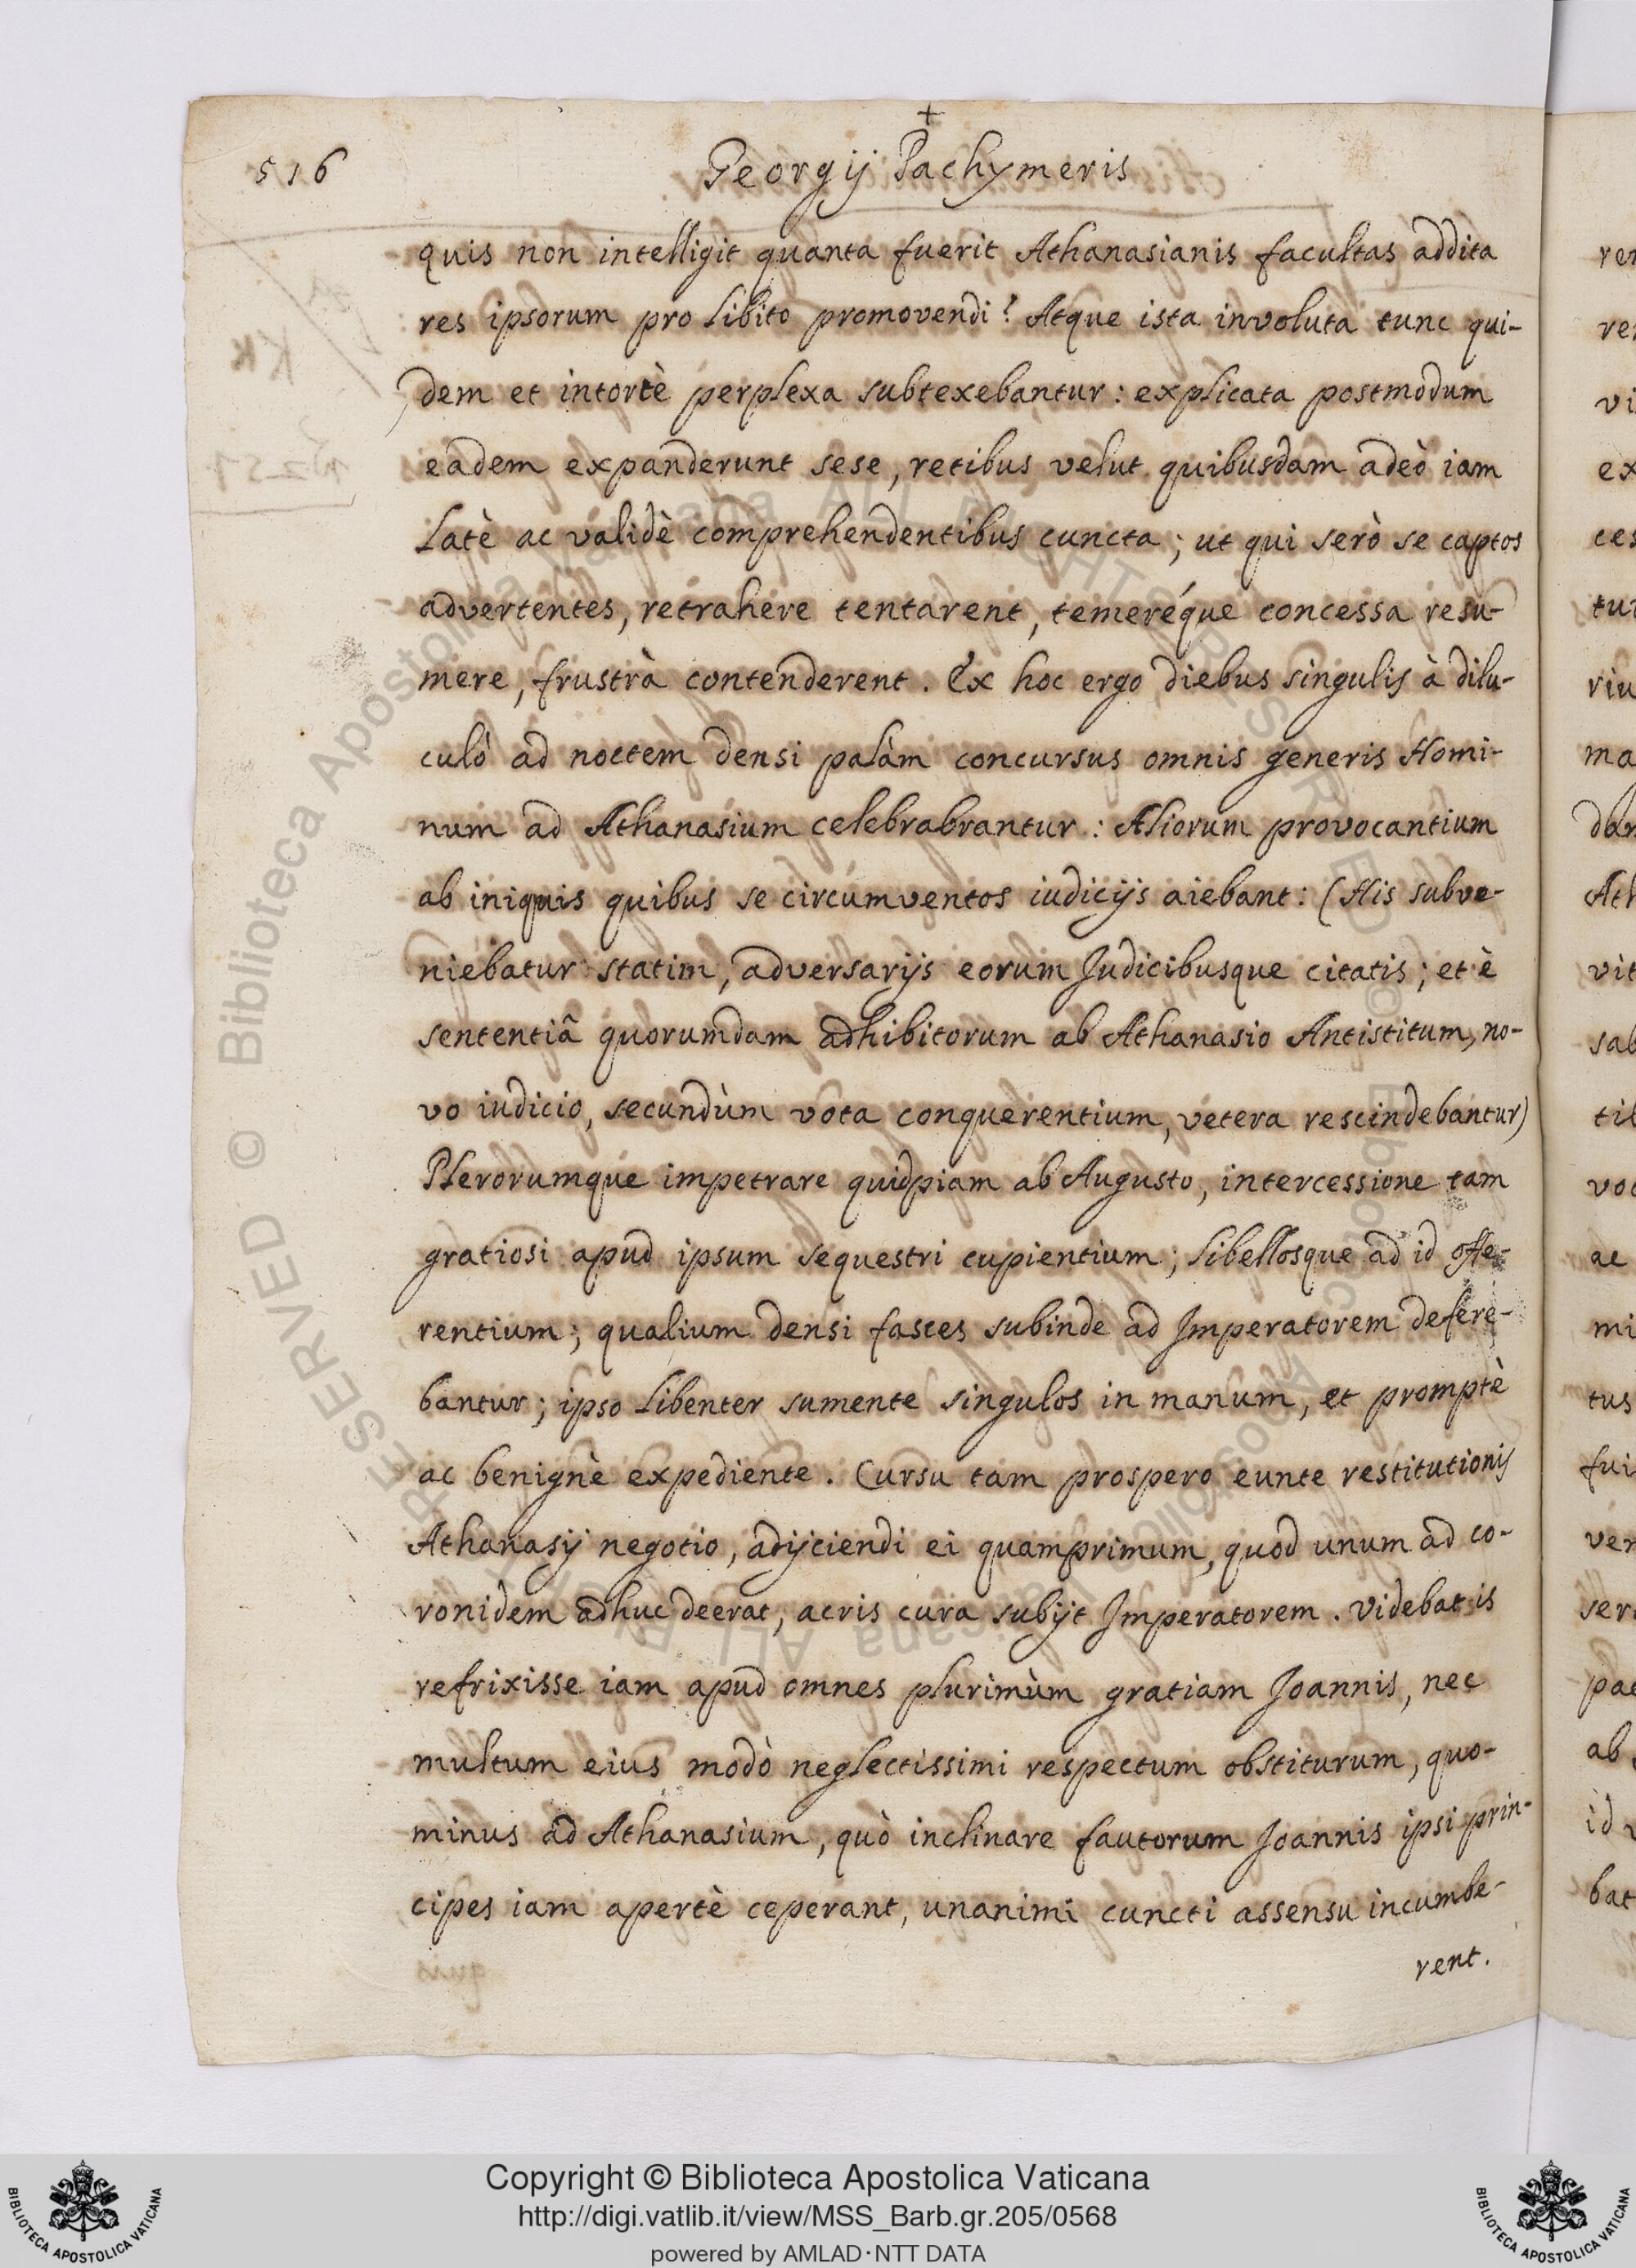 +
516
Georgij Pachymeris
quis non intelligit quanta fuerit Athanasianis facultas addita
res ipsorum pro libito promovendi? Atque ista involuta tunc qui-
dem et intortè perplexa subtexebantur: explicata postmodum
eadem expanderunt sese, retibus velut quibusdam adeò iam
latè ac validè comprehendentibus cuncta; ut qui serò se captos
advertentes, retrahere tentarent, temeréque concessa resu-
mere, frustrà contenderent. Ex hoc ergo diebus singulis à dilu-
culò ad noctem densi palàm concursus omnis generis Homi-
num ad Athanasium celebrabrantur: Aliorum provocantium
ab iniquis quibus se circumventos iudicijs aiebant: (His subve-
niebatur statim, adversarijs eorum Judicibusque citatis; et è
sententiâ quorumdam adhibitorum ab Athanasio Antistitum, no-
vo iudicio, secundùm vota conquerentium, vetera rescindebantur)
Plerorumque impetrare quidpiam ab Augusto, intercessione tam
gratiosi apud ipsum sequestri cupientium; libellosque ad id offe-
rentium; qualium densi fasces subinde ad Imperatorem defere-
bantur; ipso libenter sumente singulos in manum, et promptè
ac benignè expediente. Cursu tam prospero eunte restitutionis
Athanasij negotio, adijciendi ei quamprimum, quod unum ad co-
ronidem adhuc deerat, acris cura subijt Imperatorem. Videbat is
refrixisse iam apud omnes plurimùm gratiam Joannis, nec
multum eius modò neglectissimi respectum obstiturum, quo-
minus ad Athanasium, quò inclinare fautorum Joannis ipsi prin-
cipes iam apertè ceperant, unanimi cuncti assensu incumbe-
rent.
Copyright © Biblioteca Apostolica Vaticana
http://digi.vatlib.it/view/MSS_Barb.gr.205/0568
powered by AMLAD·NTT DATA
BIBLIOTECA APOSTOLICA VATICANA
BIBLIOTECA APOSTOLICA VATICANA